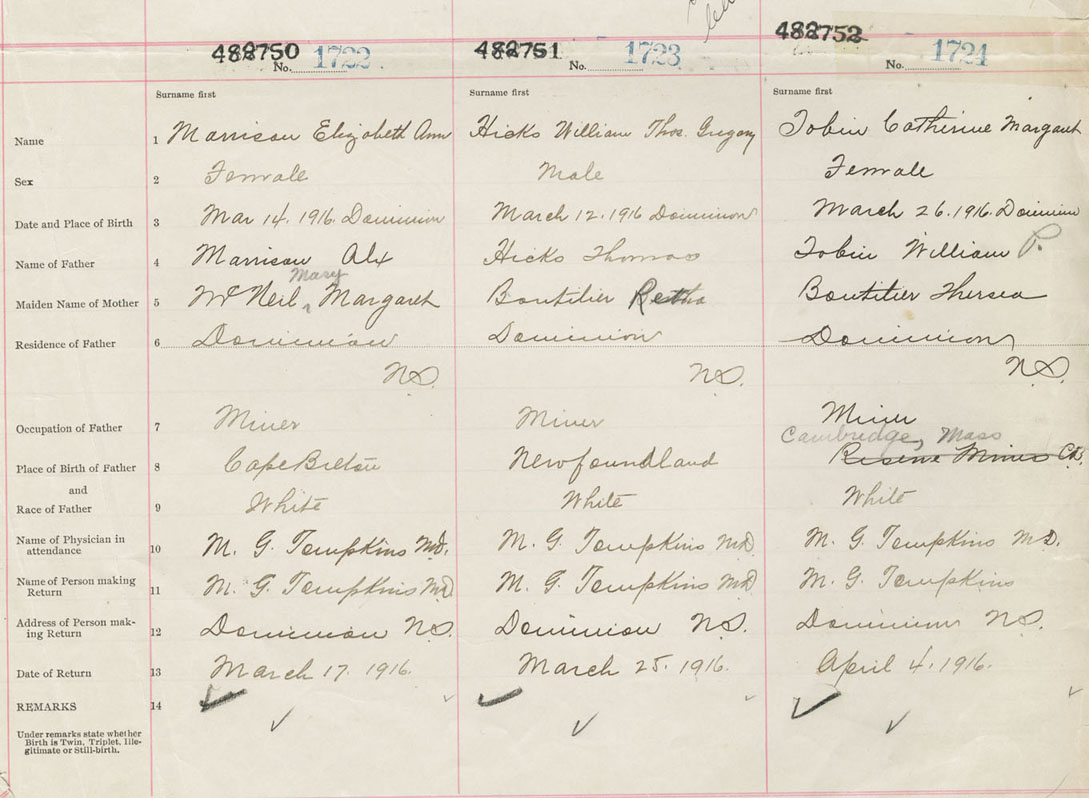 482750 No. 1722 482751 No. 1723 482752 No. 1724
Surname first Surname first Surname first
Name 1 Morrison Elizabeth Ann Hicks William Thos. Gregory Tobin Catherine Margaret
Sex 2 Female Male Female
Date and Place of Birth 3 Mar 14. 1916. Dominion March 12. 1916 Dominion March 26. 1916. Dominion
Name of Father 4 Morrison Alx Hicks Thomas Tobin William P.
Mary
Maiden Name of Mother 5 McNeil, Margaret Boutilier Retha Boutilier Thersea
Residence of Father 6 Dominion Dominion Dominion
N.S. N.S. N.S.
Occupation of Father 7 Miner Miner Miner
Cambridge, Mass
Place of Birth of Father 8 Cape Breton Newfoundland Reserve Mines C.B.
and
Race of Father 9 White White White
Name of Physician in
attendance 10 M. G. Tompkins M.D. M. G. Tompkins M.D. M. G. Tompkins M.D.
Name of Person making
Return 11 M. G. Tompkins M.D. M. G. Tompkins M.D. M. G. Tompkins
Address of Person mak-
ing Return 12 Dominion N.S. Dominion N.S. Dominion N.S.
Date of Return 13 March 17. 1916. March 25. 1916. April 4. 1916.
REMARKS 14
Under remarks state whether
Birth is Twin, Triplet, Ille-
gitimate or Still-birth.